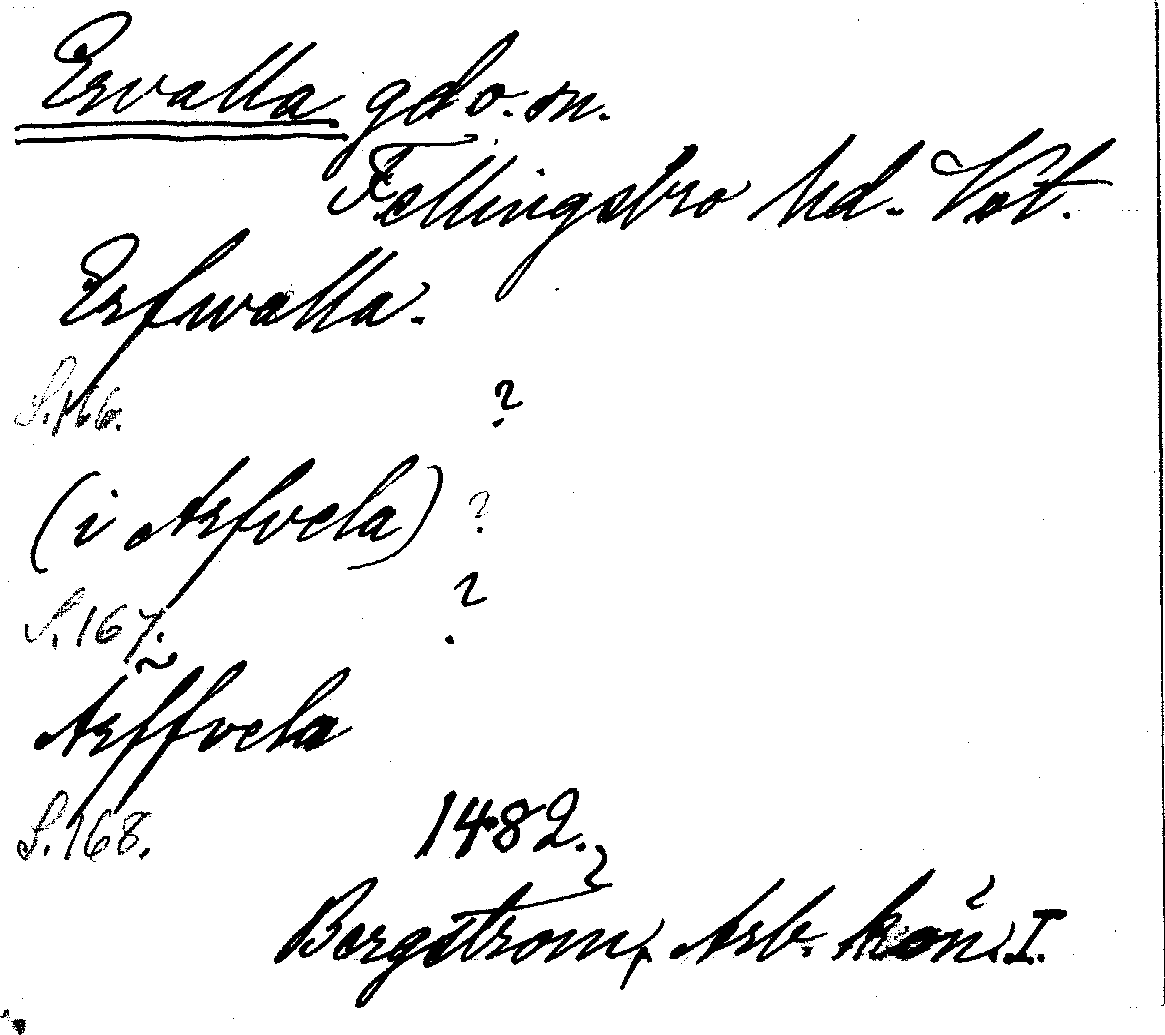 Ervalla gd o. sn.
Fellingsbro hd. Vst.
Erfwalla.
S. 166. ?
(i Arfvela) ?
S. 167. ?
Arffvela
S. 168. 1482.
Bergström, Arb. kön. I.